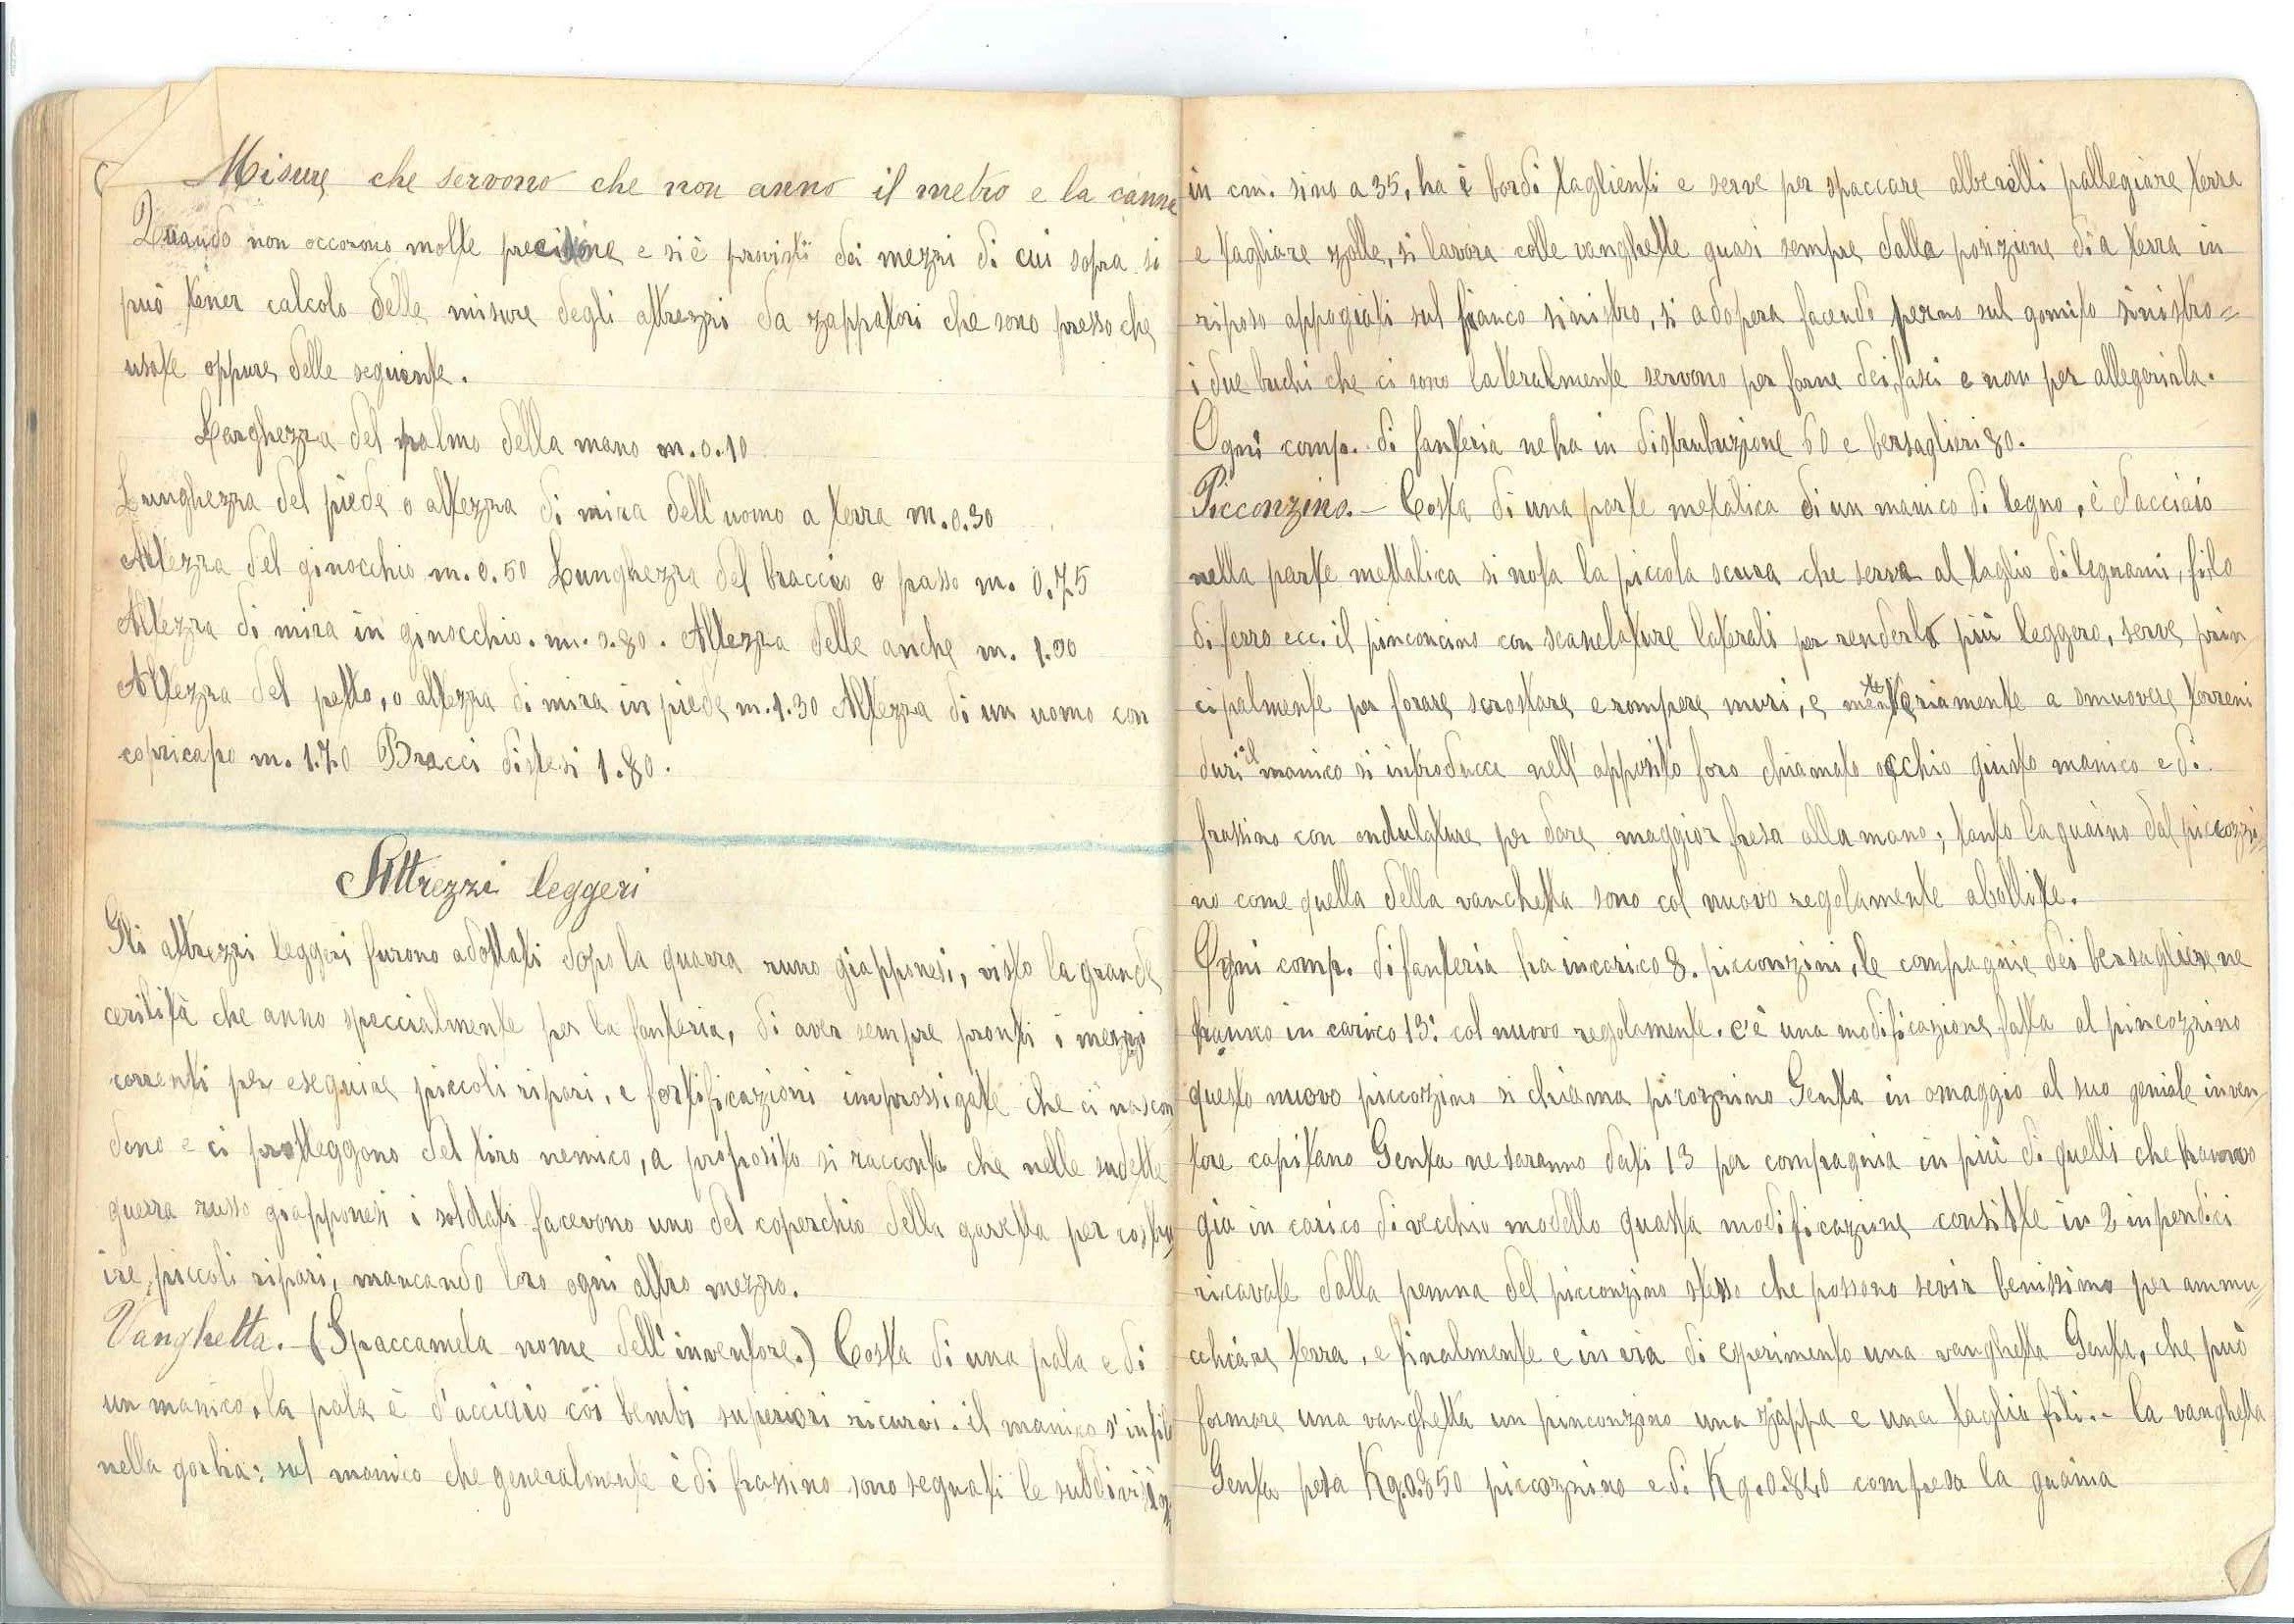 Misure che servono che non anno il metro e la canne
Quando non occorono molte precisione e si è provisti dei mezzi di cui sopra si
può tener calcolo delle misure degli attrezzi da zappatori che sono presso che
usate oppure delle seguente.
Larghezza del palmo della mano m. 0.10
Lunghezza del piede o altezza di mira dell'uomo a terra m. 0.30
Altezza del ginocchio m. 0.50 Lunghezza del braccio o passo m. 0.75
Altezza di mira in ginocchio. m. 0.80. Altezza delle anche m. 1.00
Altezza del petto, o altezza di mira in piede m. 1.30 Altezza di un uomo con
copricapo m. 1.70 Bracci distesi 1.80.
Attrezzi leggeri
Gli attrezzi leggeri furono adottati dopo la guerra russo giapponesi, visto la grande
che anno speccialmente per la fanteria, di aver sempre pronti i mezzi
correnti per eseguire piccoli ripari, e fortificazioni improssigate che ci nascon
dono e ci protteggono del tiro nemico, a proposito si racconta che nelle sudette
guerra russo giapponesi i soldati facevono uno del coperchio della gavetta per costru
ire, piccoli ripari, mancando loro ogni altro mezzo.
Vanghetta. (Spaccamela nome dell'inventore.) Costa di una pala e di
un manico, la pala è d'acciaio coi bembi superiori ricurvi. il manico s'infila
nella gorbia: sul manico che generalmente è di frassino sono segnati le suddivisio=
in cm. sino a 35, ha è bordi taglienti e serve per spaccare alberelli pallegiare terra
e tagliare zolle, si lavora colle vanghette quasi sempre dalla posizione di a terra in
riposo appogiati sul fianco sinistro, si adopera facendo perno sul gomito sinistro=
i due buchi che ci sono lateralmente servono per farne dei fasci e non per allegerirla.
Ogni comp. di fanteria ne ha in distrubuzione 60 e bersaglieri 80.
Picconzino. - Costa di una parte metalica di un manico di legno, è d'acciaio
nella parte mettalica si nota la piccola scura che serve al taglio di legnami, filo
di ferro ecc. il pinconcino con scanelature laterali per renderlo più leggero, serve prin
cipalmente per forare scrostare e rompere muri, e a smuovere terreni
duri il manico si introducce nell'apposito foro chiamato occhio giusto manico e di
frassino con ondulature per dare maggior presa alla mano; tanto la guaino dal piccozzi=
no come quella della vanchetta sono col nuovo regolamente abollite.
Ogni comp. di fanteria ha incarico 8. picconzini, le compagnie dei bersagliere ne
hanno in carico 13. col nuovo regolamente. c'è una modificazione fatta al pincozzino
questo nuovo piccozzino si chiama picozzino Genta in omaggio al suo geniale inven=
tore capitano Genta ne saranno dati 13 per compagnia in più di quelli che hanno
gia in carico di vecchio modello quasta modificazione consiste in 2 inpendici
ricavate dalla penna del picconzino stesso che possono sevir benissimo per ammu=
cchiare terra, e finalmente e in via di esperimento una vanghetta Genta, che può
formare una vanghetta un pinconzino una zappa e una taglia fili. - la vanghetta
Genta pesa Kg.0.850 piccozzino e di Kg.0.840 compresa la guaina